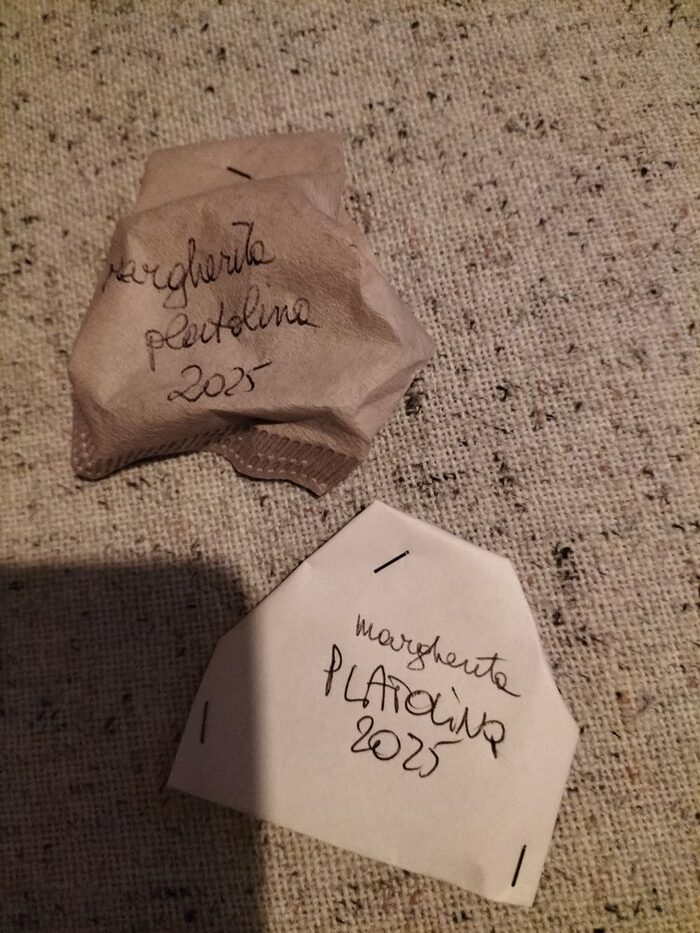 margherita
platolina
2025
margherita
PLATOLINA
2025